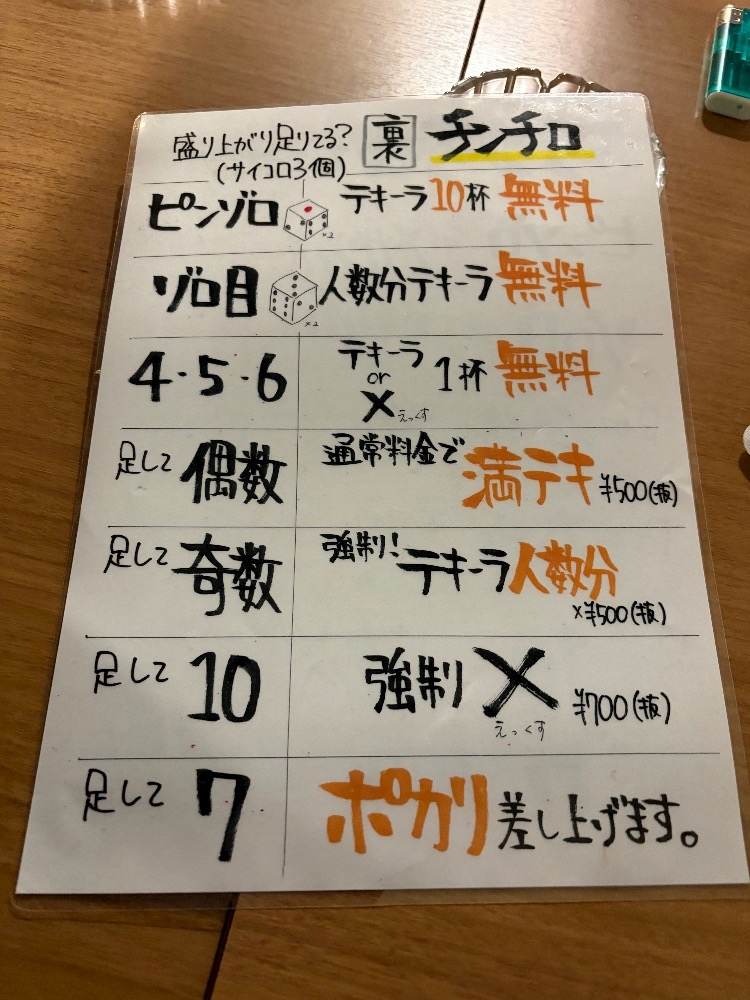 盛り上がり足りてる?
(サイコロ3個)
裏 チンチロ
ピンゾロ ×2 テキーラ10杯 無料
ゾロ目 ×2 人数分テキーラ 無料
4・5・6 テキーラ or X えっくす 1杯 無料
足して 偶数 通常料金で 満テキ ¥500(抜)
足して 奇数 強制! テキーラ人数分 ×¥500(抜)
足して 10 強制 X えっくす ¥700(抜)
足して 7 ポカリ差し上げます。